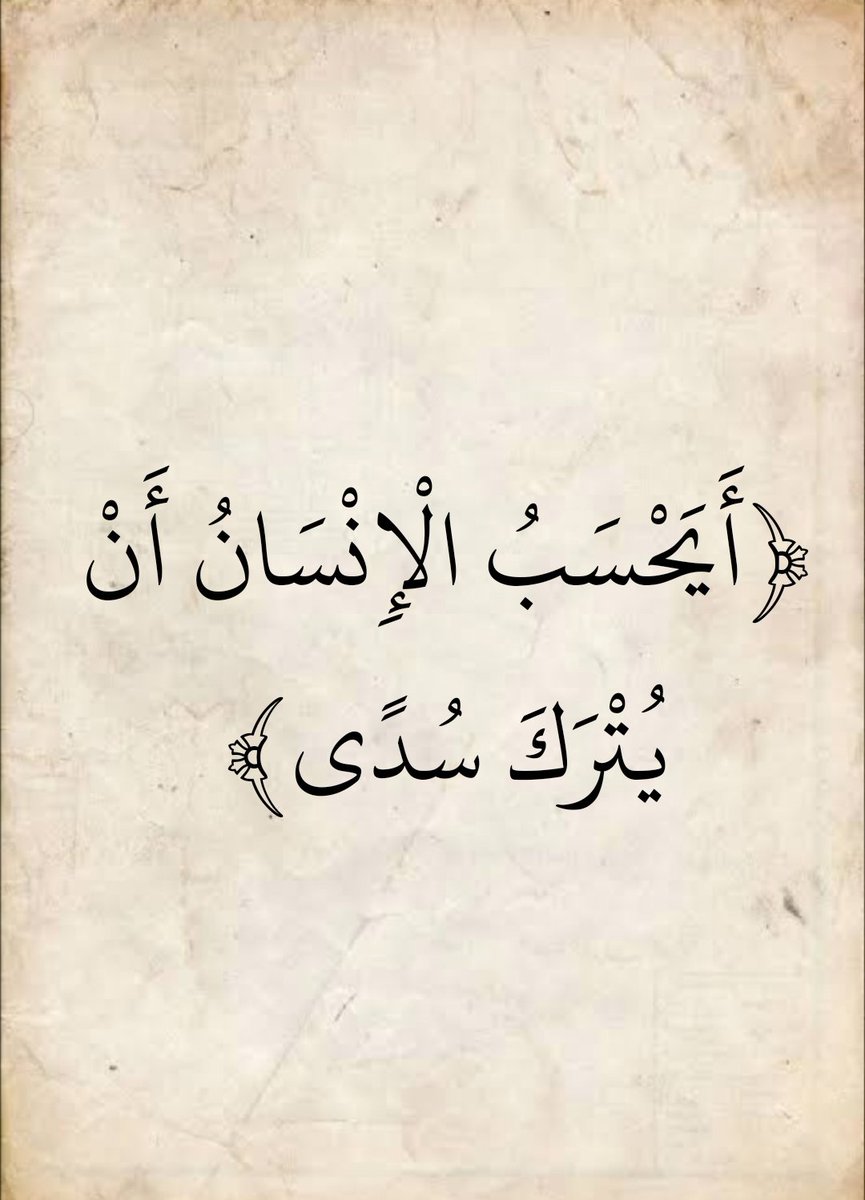 ﴿أَيَحْسَبُ الْإِنْسَانُ أَنْ
يُتْرَكَ سُدًى﴾